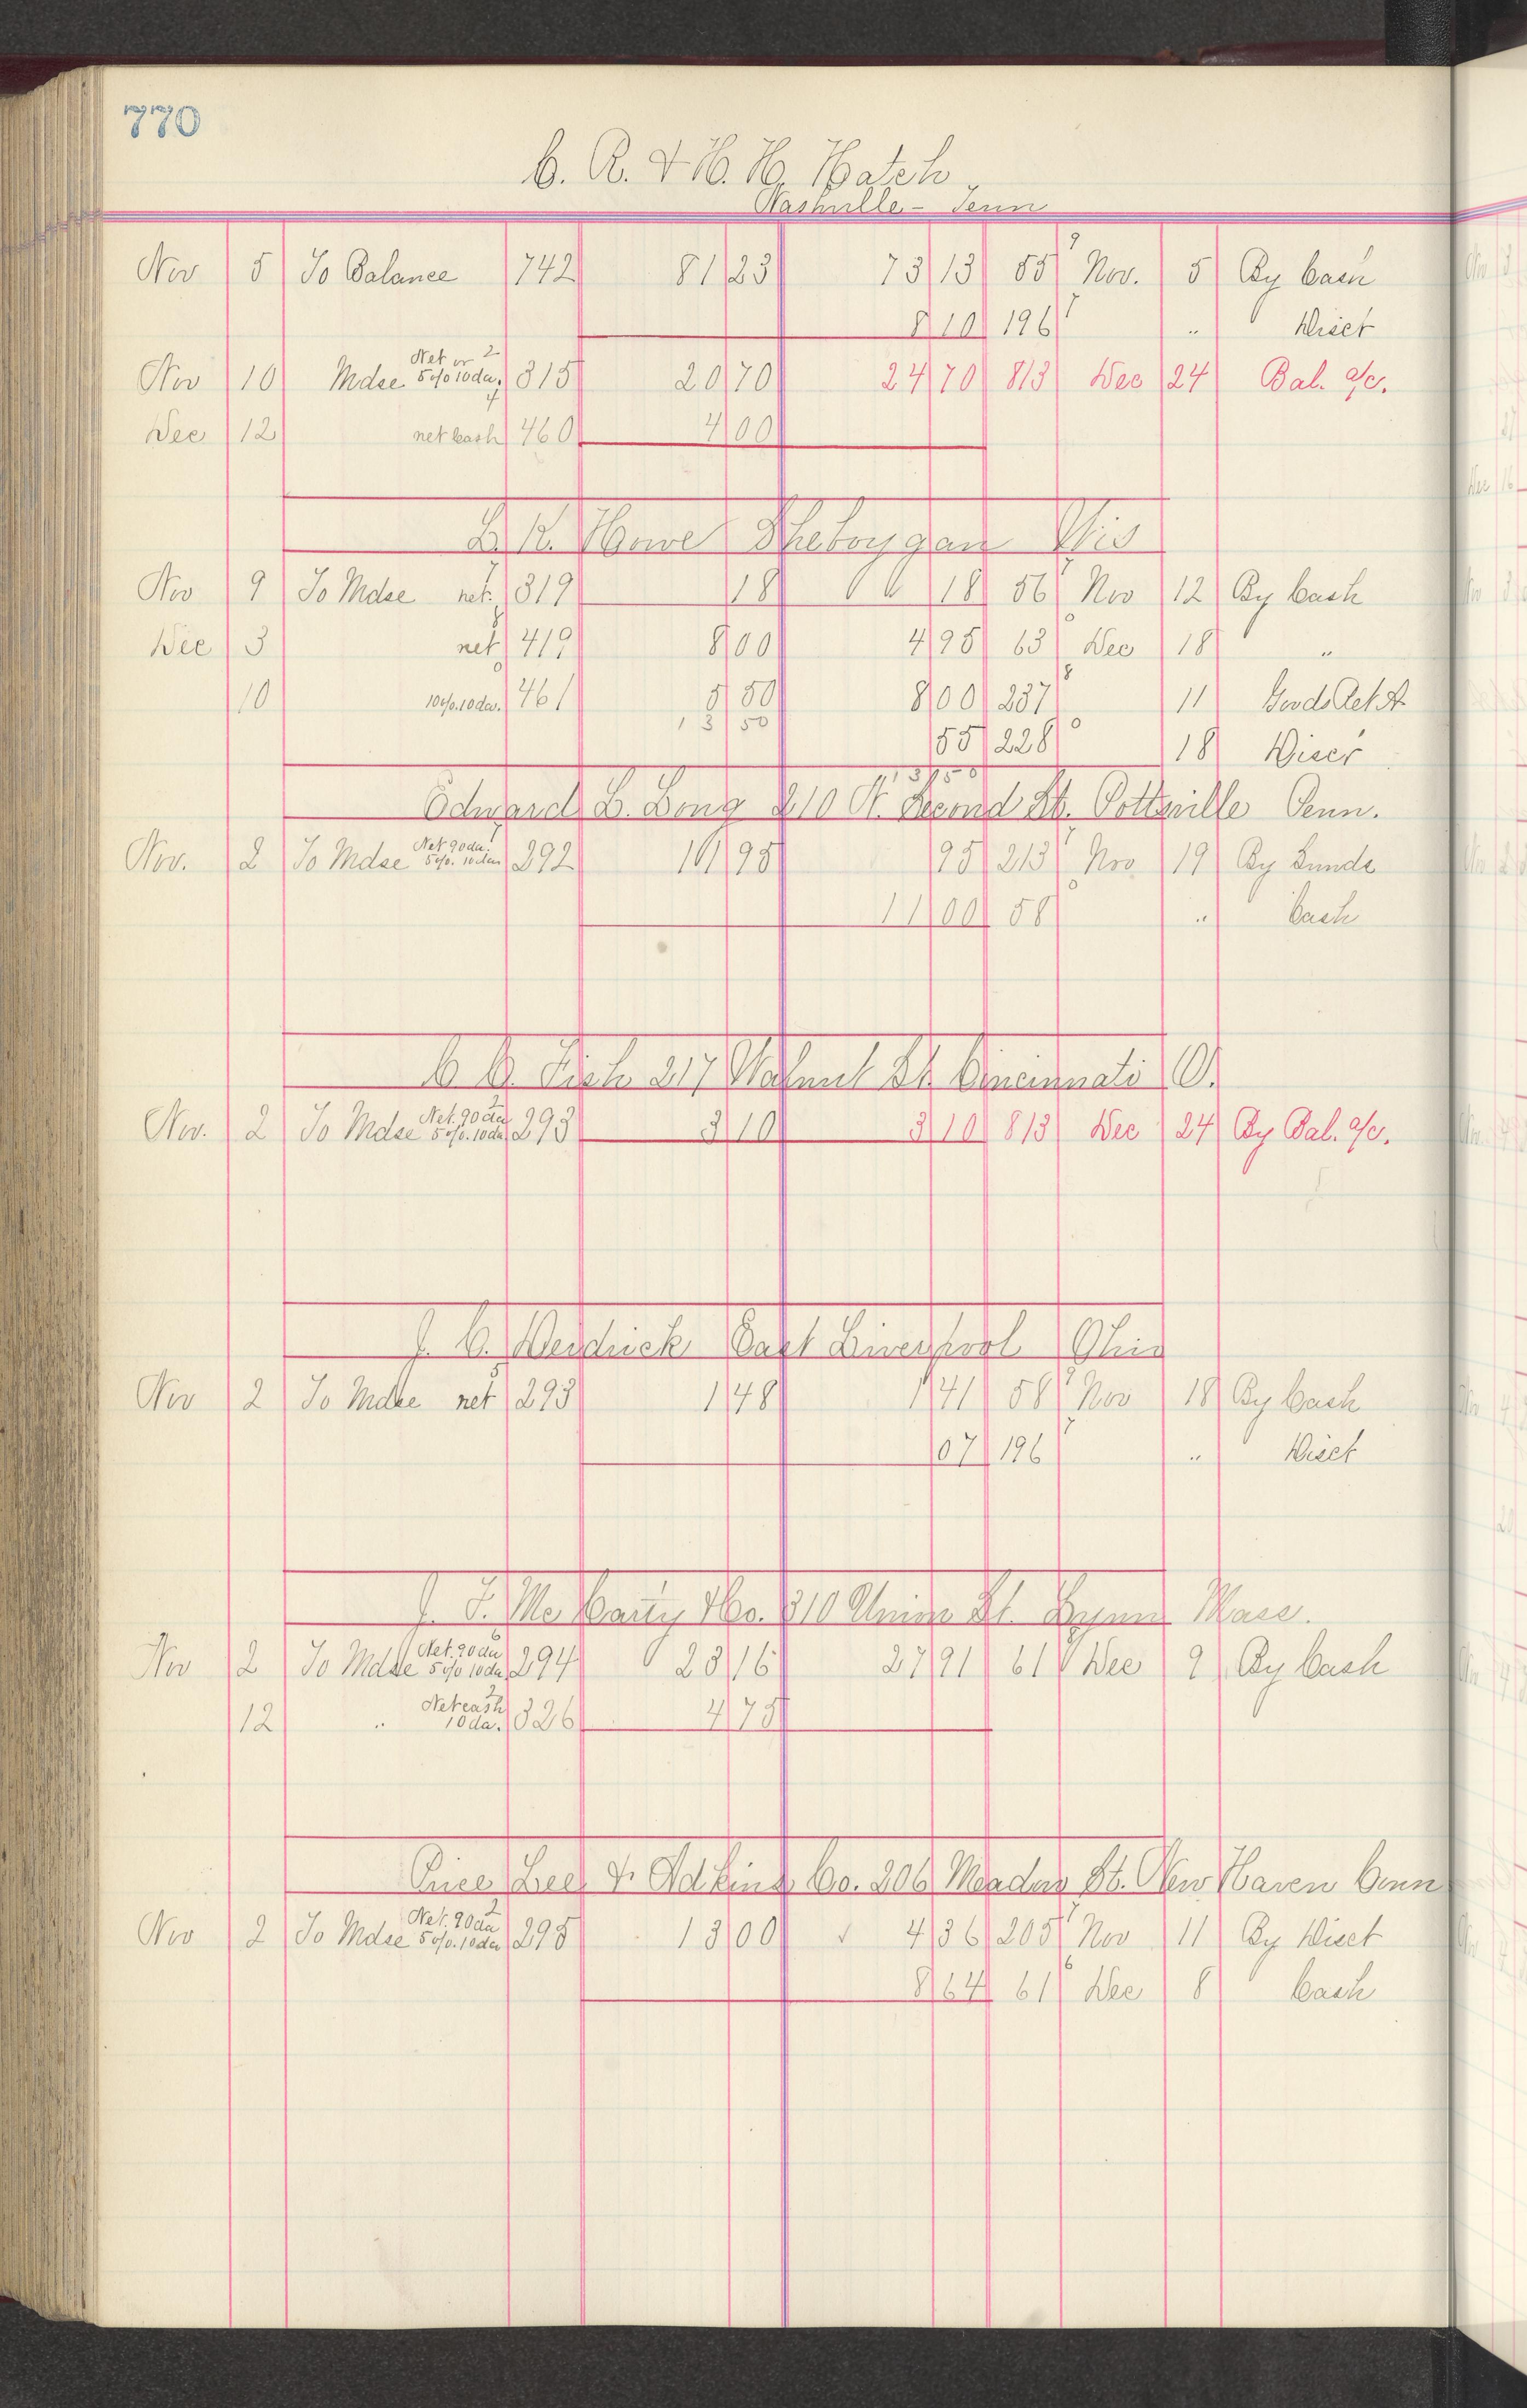 770
C. R. & H. H. Hatch
Nashville - Tenn
Nov 5 To Balance 742 81 23 73 13 55 9 Nov. 5 By Cash
8 10 196 7 " Disct
Nov 10 Mdse Net or 5% 10 da. 2 315 20 70 24 70 813 Dec 24 Bal. a/c.
Dec 12 net Cash 4 460 4 00
L. K. Howe Sheboygan Wis
Nov 9 To Mdse net 319 18 18 56 Nov 12 By Cash
Dec 3 net 419 8 00 4 95 63 Dec 18 "
10 10% 10 da. 461 5 50 8 00 237 8 11 Goods Ret'd
13 50 55 228 0 18 Disct
13 50
Edward L. Long 210 N. Second St. Pottsville Penn.
Nov. 2 To Mdse Net 90 da. 5% 10 da 1 292 11 95 95 213 Nov 19 By Sunds
11 00 58 0 " Cash
217 Walnut St. Cincinnati O.
Nov. 2 To Mdse Net. 90 da 5% 10 da 2 293 3 10 3 10 813 Dec 24 By Bal. a/c.
East Liverpool Ohio
Nov 2 To Mdse net 293 1 48 1 41 58 Nov 18 By Cash
07 196 7 " Disct
J. F. McCarty & Co. 310 Union St. Lynn Mass.
Nov 2 To Mdse Net. 90 da 5% 10 da 6 294 23 16 27 91 61 Dec 9 By Cash
12 " Net cash 10 da. 2 326 4 75
Price Lee & Adkins Co. 206 Meadow St. New Haven Conn
Nov 2 To Mdse Net. 90 da 5% 10 da 2 295 13 00 4 36 205 7 Nov 11 By Disct
8 64 61 6 Dec 8 Cash